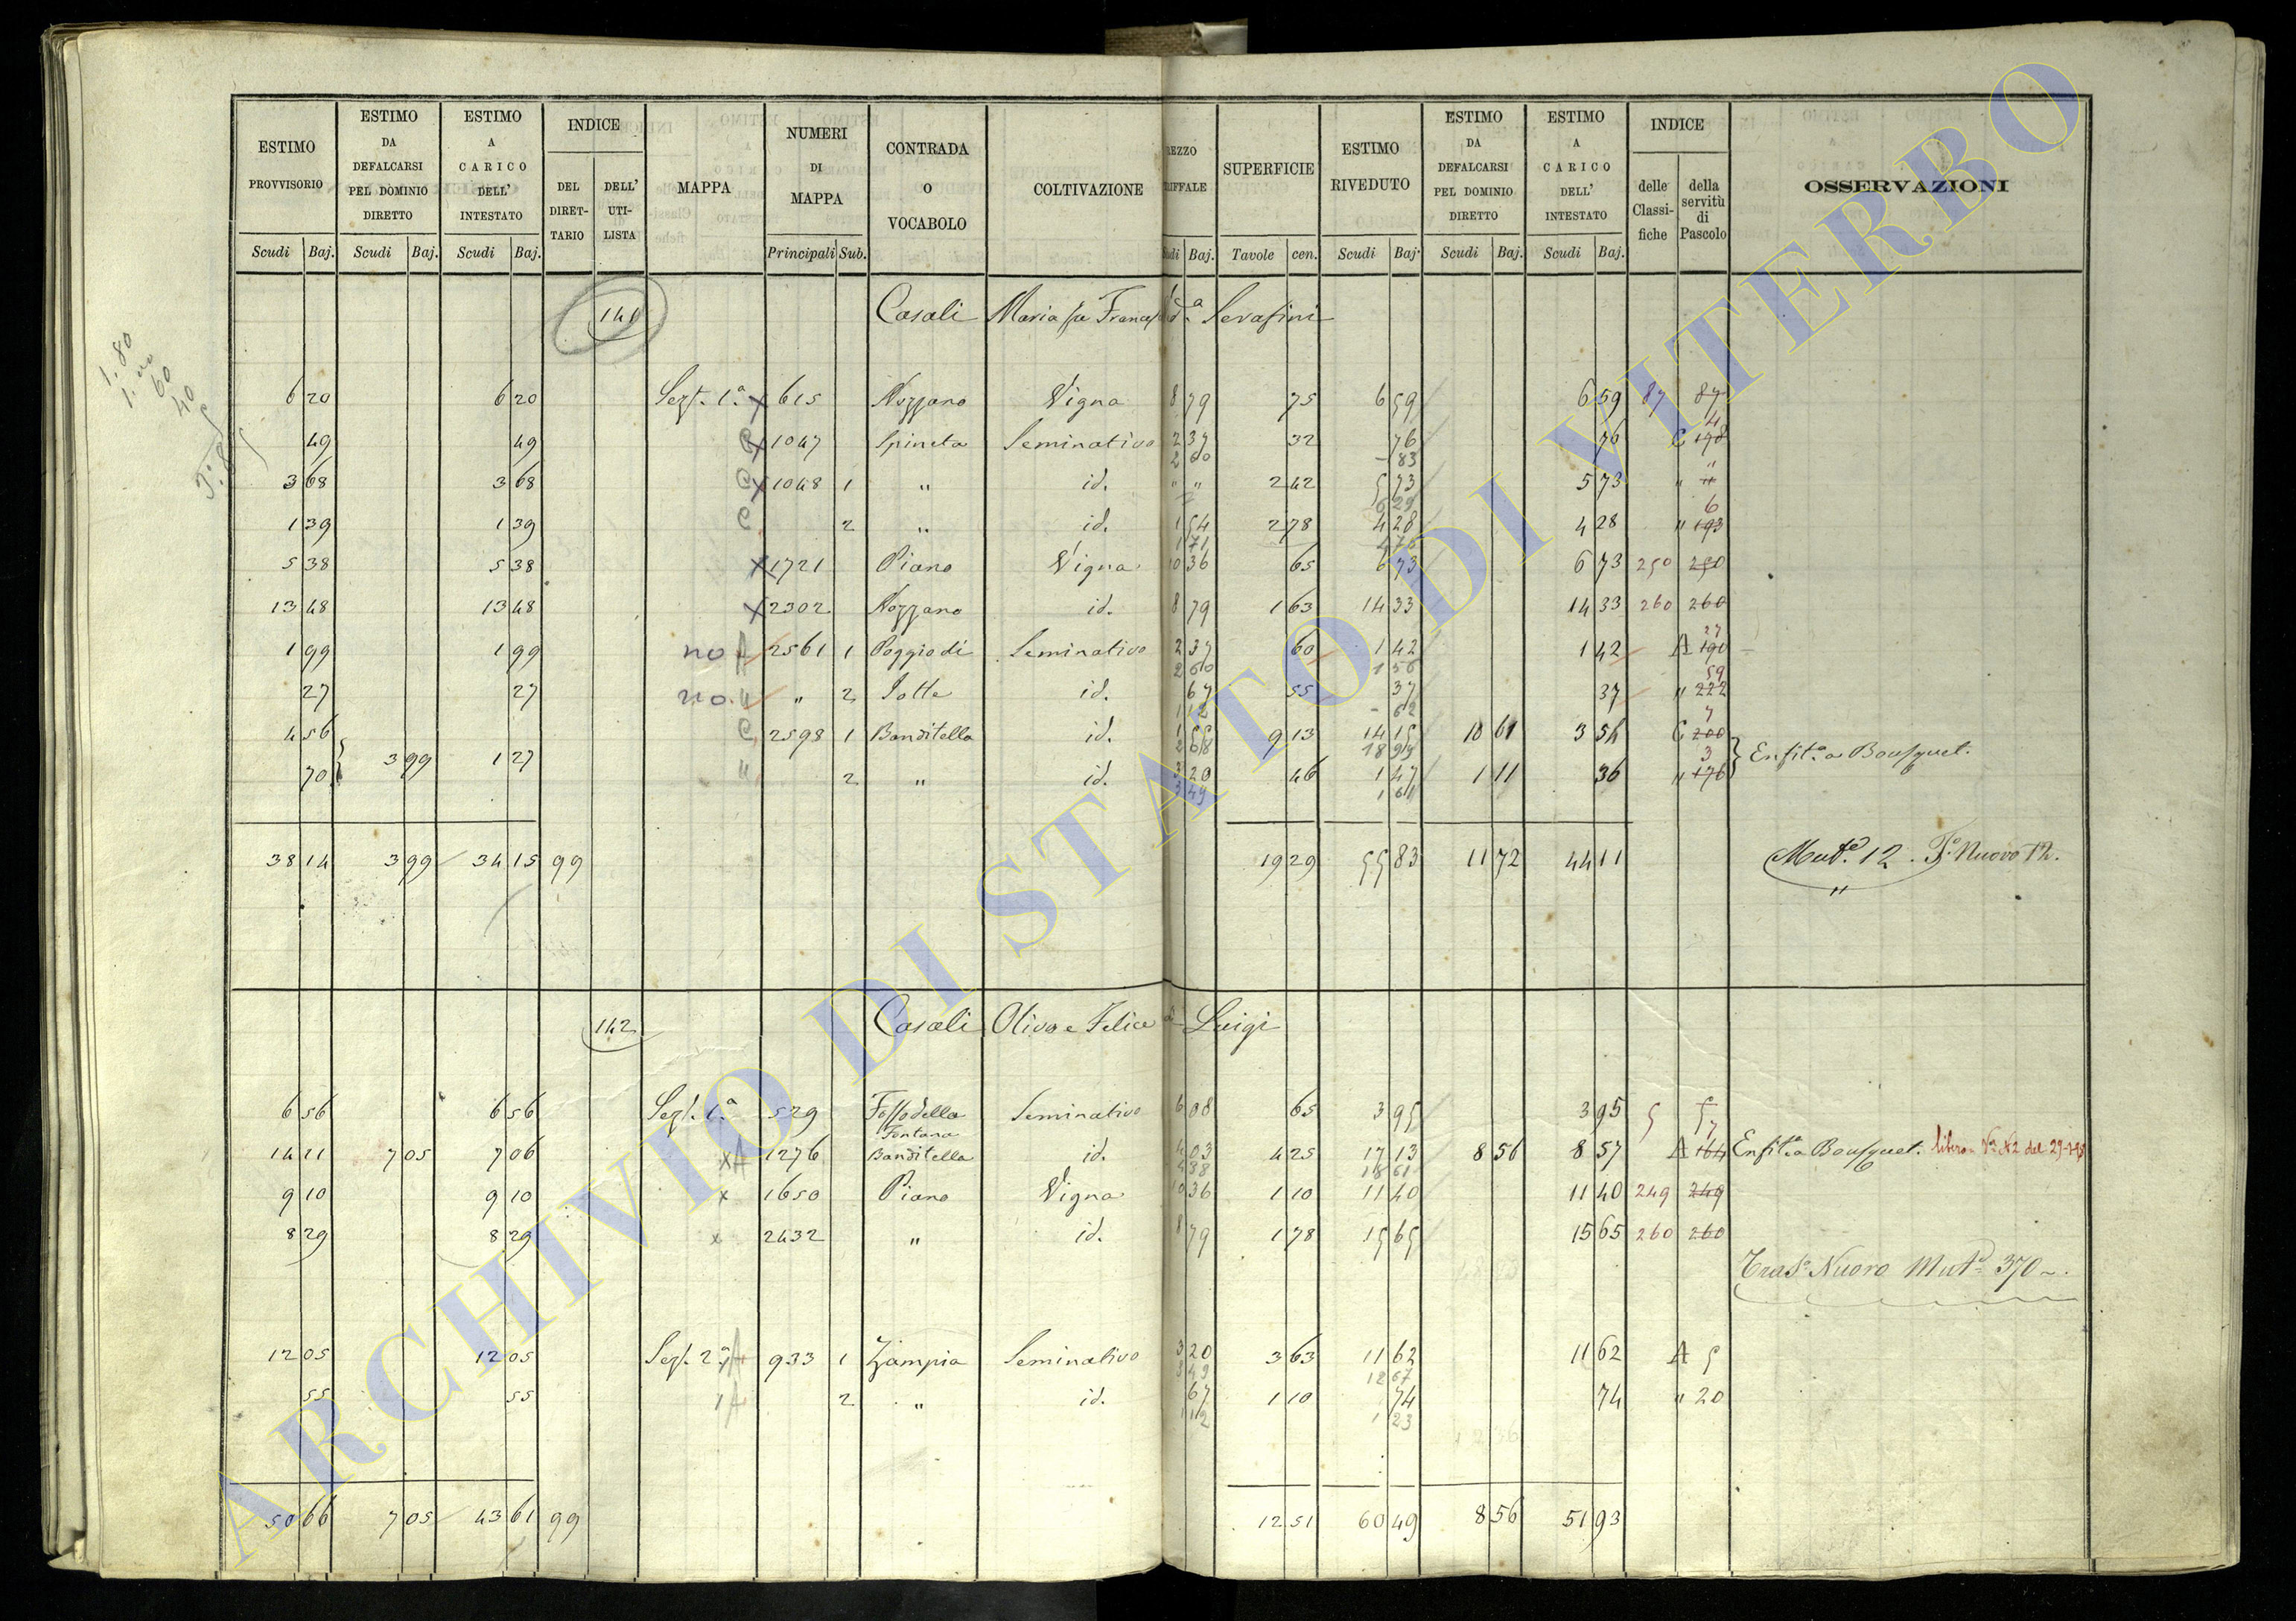 ESTIMO PROVVISORIO | ESTIMO DA DEFALCARSI PEL DOMINIO DIRETTO | ESTIMO A CARICO DELL' INTESTATO | INDICE | MAPPA | NUMERI DI MAPPA | CONTRADA O VOCABOLO | COLTIVAZIONE | REZZO RIFFALE | SUPERFICIE | ESTIMO RIVEDUTO | ESTIMO DA DEFALCARSI PEL DOMINIO DIRETTO | ESTIMO A CARICO DELL' INTESTATO | INDICE | OSSERVAZIONI
DEL DIRET-TARIO | DELL' UTI-LISTA | delle Classi-fiche | della servitù di Pascolo
Scudi | Baj. | Scudi | Baj. | Scudi | Baj. | Principali | Sub. | Baj. | Tavole | cen. | Scudi | Baj. | Scudi | Baj. | Scudi | Baj.
141 Casali Maria fu Serafini
1.80
60
40
6 20 | 6 20 | Sezt. 1.a x 615 | Nozzano | Vigna | 8 79 | 75 | 6 59 | 6 59 | 87 | 87
4
49 | 49 | C x 1047 | Spineta | Seminativo | 2 37 | 32 | 76 | 76 | C 178
2 60 | 83
3 68 | 3 68 | C x 1048 1 | " | id. | " " | 2 42 | 5 73 | 5 73 | " "
6 29 | 6
1 39 | 1 39 | C 2 | " | id. | 1 54 | 2 78 | 4 28 | 4 28 | " 193
1 71 | 4 76
5 38 | 5 38 | x 1721 | Piano | Vigna | 10 36 | 65 | 6 73 | 6 73 | 250 | 250
13 48 | 13 48 | x 2302 | Nozzano | id. | 8 79 | 1 63 | 14 33 | 14 33 | 260 | 260
27
1 99 | 1 99 | no A 2561 1 | Poggio di | Seminativo | 2 37 | 60 | 1 42 | 1 42 | A 190
2 60 | 1 56 | 59
27 | 27 | no. " " 2 | Sotto | id. | 67 | 55 | 37 | 37 | " 222
1 12 | 62 | 7
4 56 | C 2598 1 | Banditella | id. | 9 13 | 14 15 | 10 61 | 3 54 | C 200
18 99 | 3
3 99 | 1 27 | Enfit.a a Bousquet.
70 | " 2 | " | id. | 3 20 | 46 | 1 47 | 1 11 | 36 | " 176
3 49 | 1 61
38 14 | 3 99 | 34 15 | 99 | 19 29 | 55 83 | 11 72 | 44 11 | Mut.e 12. Nuovo 12.
"
142 Casali Olivo e Felice di Luigi
6 56 | 6 56 | Sezt. 1.a 529 | Fosso della | Seminativo | 6 08 | 65 | 3 95 | 3 95 | 5 | 5
Fontana | 7
14 11 | 7 05 | 7 06 | x A 1276 | Banditella | id. | 4 03 | 4 25 | 17 13 | 8 56 | 8 57 | A 164 | Enfit.a a Bousquet.
4 38 | 18 61
9 10 | 9 10 | x 1650 | Piano | Vigna | 10 36 | 1 10 | 11 40 | 11 40 | 249 | 249
8 29 | 8 29 | x 2432 | " | id. | 8 79 | 1 78 | 15 65 | 15 65 | 260 | 260
Nuovo Mut.e 370
12 05 | 12 05 | Sezt. 2.a A 933 1 | Zampia | Seminativo | 3 20 | 3 63 | 11 62 | 11 62 | A 5
3 49 | 12 67
55 | 55 | A 2 | " | id. | 67 | 1 10 | 74 | 74 | " 20
1 12 | 1 23
50 66 | 7 05 | 43 61 | 99 | 12 51 | 60 49 | 8 56 | 51 93
ARCHIVIO DI STATO DI VITERBO